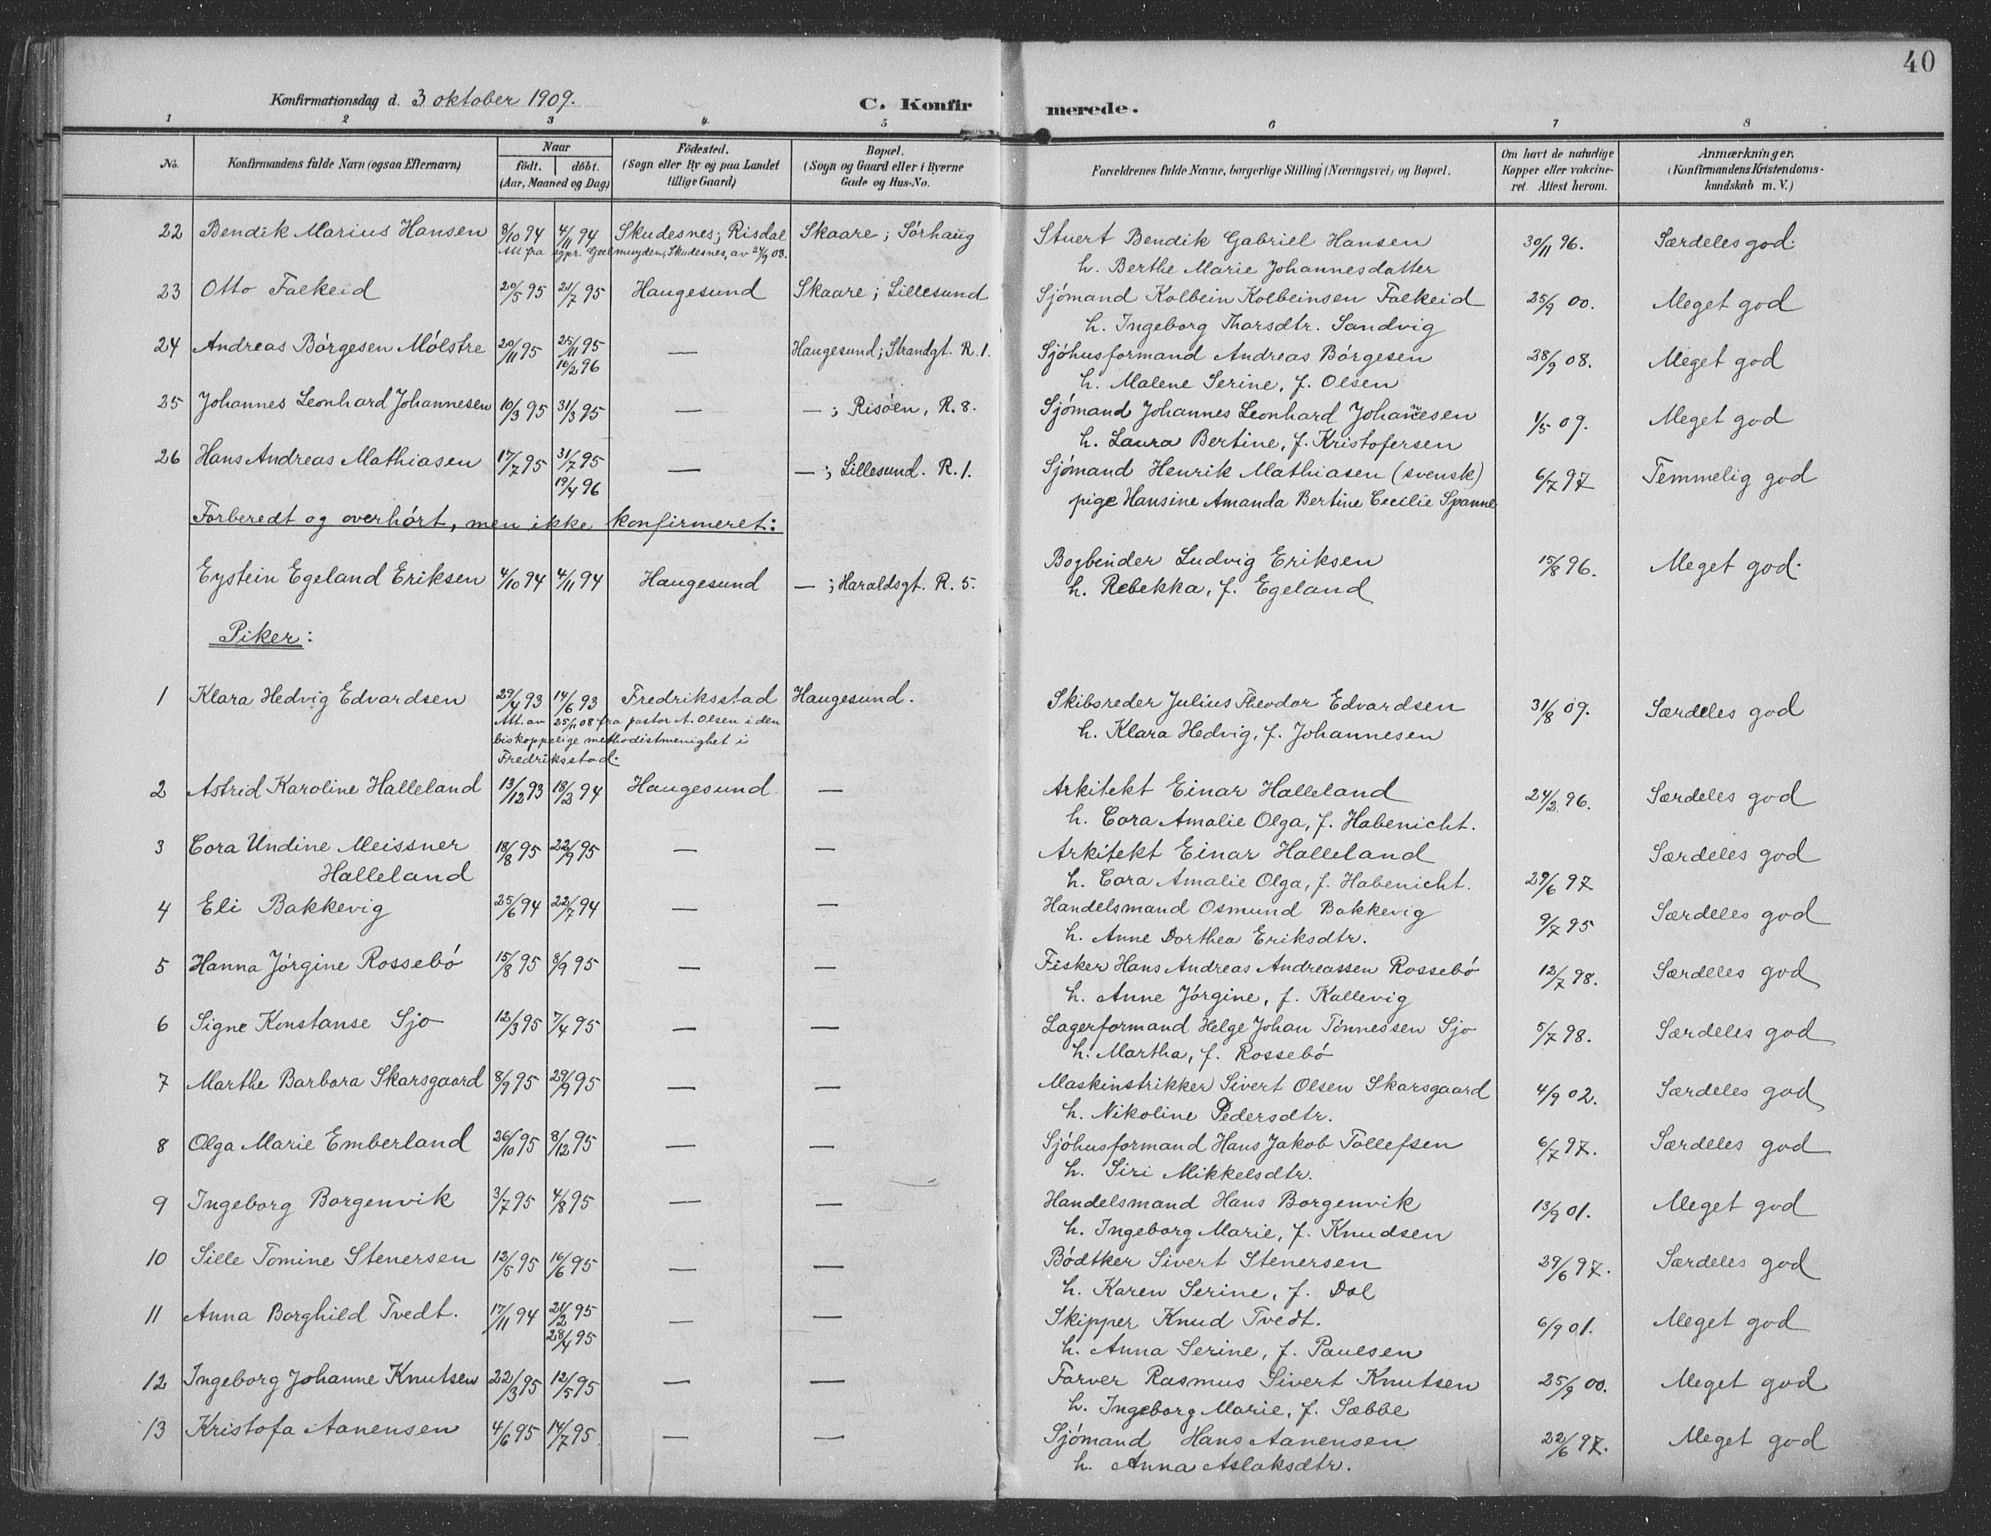 40
Konfirmationsdag d. 3 oktober 1909. C. Konfirmerede.
1 2 3 4 5 6 7 8
No. | Konfirmandens fulde Navn (ogsaa Efternavn) | Naar födt. döbt. (Aar, Maaned og Dag) | Födested. (Sogn eller By og paa Landet tillige Gaard) | Bopæl. (Sogn og Gaard eller i Byerne Gade og Hus-No. | Forældrenes fulde Navne, borgerlige Stilling (Næringsvei) og Bopæl. | Om havt de naturlige Kopper eller vakcineret. Attest herom. | Anmærkninger. (Konfirmandens Kristendomskundskab m. V.)
22 Bendik Marius Hansen 8/10 94 4/11 94 Skudesnes; Risdal Skaare; Sörhaug Stuert Bendik Gabriel Hansen 30/11 96. Særdeles god.
Att fra sgpr. Geelmuyden, Skudesnes, av 24/9 08. h. Berthe Marie Johannesdatter
23 Otto Falkeid 20/5 95 21/7 95 Haugesund Skaare; Lillesund Sjömand Kolbein Kolbeinsen Falkeid 25/9 00. Meget god
h. Ingeborg Thorsdtr. Sandvig
24 Andreas Börgesen Mölstre 20/11 95 25/11 95 — Haugesund; Strandgt. R. 1. Sjöhusformand Andreas Börgesen 28/9 08. Meget god
16/2 96 h. Malene Serine, f. Olsen
25 Johannes Leonhard Johannesen 10/3 95 31/3 95 — —; Risöen, R. 8. Sjömand Johannes Leonhard Johannesen 1/5 09. Meget god
h. Laura Bertine, f. Kristofersen
26 Hans Andreas Mathiasen 17/7 95 31/7 95 — —; Lillesund. R. 1. Sjömand Henrik Mathiasen (svensk) 6/7 97 Temmelig god
19/4 96 pige Hansine Amanda Bertine Cecilie Spanne
Forberedt og overhört, men ikke konfirmeret:
Eystein Egeland Eriksen 4/10 94 4/11 94 Haugesund —; Haraldsgt. R. 5. Bogbinder Ludvig Eriksen 15/8 96. Meget god.
h. Rebekka, f. Egeland
Piker:
1 Klara Hedvig Edvardsen 29/4 93 14/6 93 Fredriksstad Haugesund. Skibsreder Julius Theodor Edvardsen 31/8 09. Særdeles god
Att. av 25/1 08 fra pastor A. Olsen i den h. Klara Hedvig, f. Johannesen
biskoppelige methodistmenighet i
Fredriksstad.
2 Astrid Karoline Halleland 13/12 93 18/2 94 Haugesund. — Arkitekt Einar Halleland 24/2 96. Særdeles god
h. Cora Amalie Olga, f. Habenicht.
3 Cora Undine Meissner 18/8 95 22/9 95 — — Arkitekt Einar Halleland Særdeles god
Halleland h. Cora Amalie Olga, f. Habenicht. 29/6 97
4 Eli Bakkevig 25/6 94 22/7 94 — — Handelsmand Osmund Bakkevig 9/7 95 Særdeles god
h. Anne Dorthea Eriksdtr.
5 Hanna Jörgine Rossebö 15/8 95 8/9 95 — — Fisker Hans Andreas Andreassen Rossebö 12/7 98. Særdeles god
h. Anne Jörgine, f. Kallevig
6 Signe Konstanse Sjo 12/3 95 7/4 95 — — Lagerformand Helge Johan Tönnessen Sjo 5/7 98. Særdeles god
h. Martha, f. Rossebö
7 Marthe Barbora Skarsgaard 8/9 95 29/9 95 — — Maskinstrikker Sivert Olsen Skarsgaard 4/9 02. Særdeles god
h. Nikoline Pedersdtr.
8 Olga Marie Emberland 26/10 95 8/12 95 — — Sjöhusformand Hans Jakob Tollefsen 6/7 97. Særdeles god
h. Siri Mikkelsdtr.
9 Ingeborg Borgenvik 3/7 95 4/8 95 — — Handelsmand Hans Borgenvik 13/9 01. Meget god
h. Ingeborg Marie, f. Knudsen
10 Sille Tomine Stenersen 12/5 95 16/6 95 — — Bödtker Sivert Stenersen 29/6 97. Særdeles god
h. Karen Serine, f. Dal
11 Anna Borghild Tvedt. 17/11 94 21/2 95 — — Skipper Knud Tvedt. 6/9 01. Meget god
28/4 95 h. Anna Serine, f. Paulsen
12 Ingeborg Johanne Knutsen 22/3 95 12/5 95 — — Farver Rasmus Sivert Knutsen 25/9 00. Meget god
h. Ingeborg Marie, f. Sæbbe
13 Kristofa Aanensen 4/6 95 14/7 95. — — Sjömand Hans Aanensen 22/6 97. Meget god
h. Anna Aslaksdtr.